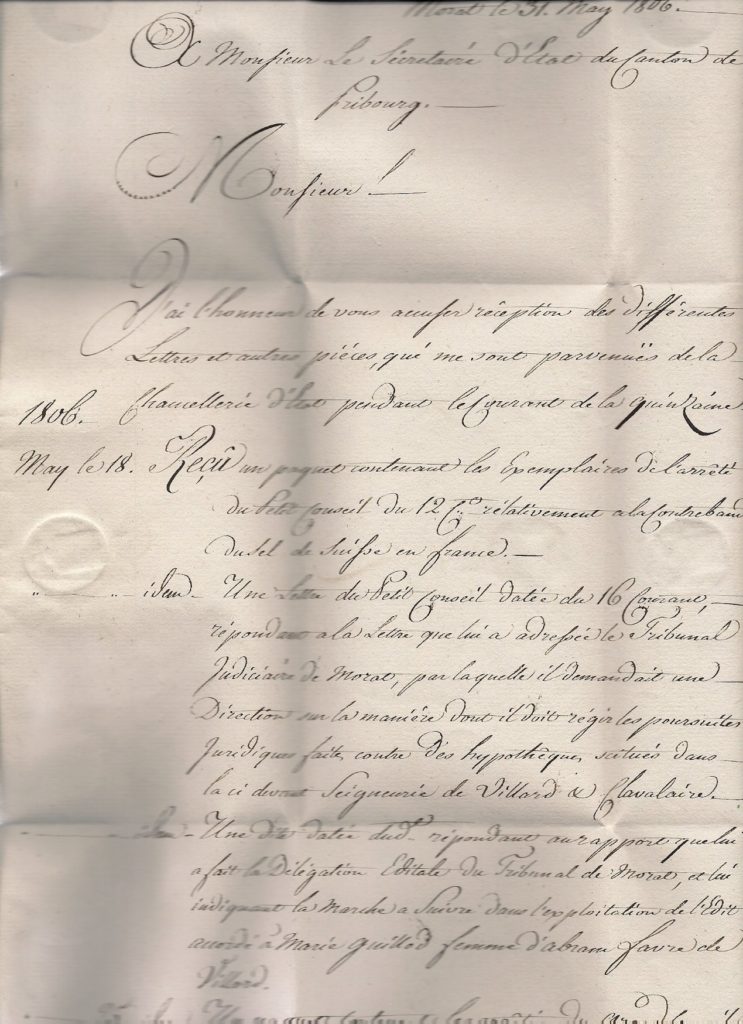 Morat le 31. May 1806.
A Monsieur Le Sécretaire d'Etat du Canton de
Fribourg.
Monsieur!
J'ai l'honneur de vous accuser réception des différentes
Lettres et autres piéces, qui me sont parvenuës de la
Chancellerie d'Etat pendant le Courant de la quinzaine
1806.
May le 18. Reçû un paquet contenant les Exemplaires de l'arrêté
du Petit Conseil du 12 Ct. rélativement a la Contreband
du sel de Suisse en france.
" " idem - Une Lettre du Petit Conseil datée du 16 Courant,
répondant a la Lettre que lui a adressée le Tribunal
Judiciaire de Morat, par laquelle il demandait une
Direction sur la maniére dont il doit régir les poursuites
Juridiques faites contre des hypothèques scitués dans
la ci devant Seigneurie de Villard & Clavalaire.
idem - Une dite datée dud. répondant au rapport que lui
a fait la Délégation Editale du Tribunal de Morat, et lui
indiquant la Marche a Suivre dans l'exploitation de l'Edit
accordé à Marie Guillod femme d'abram favre de
Villard.
Un paquet du